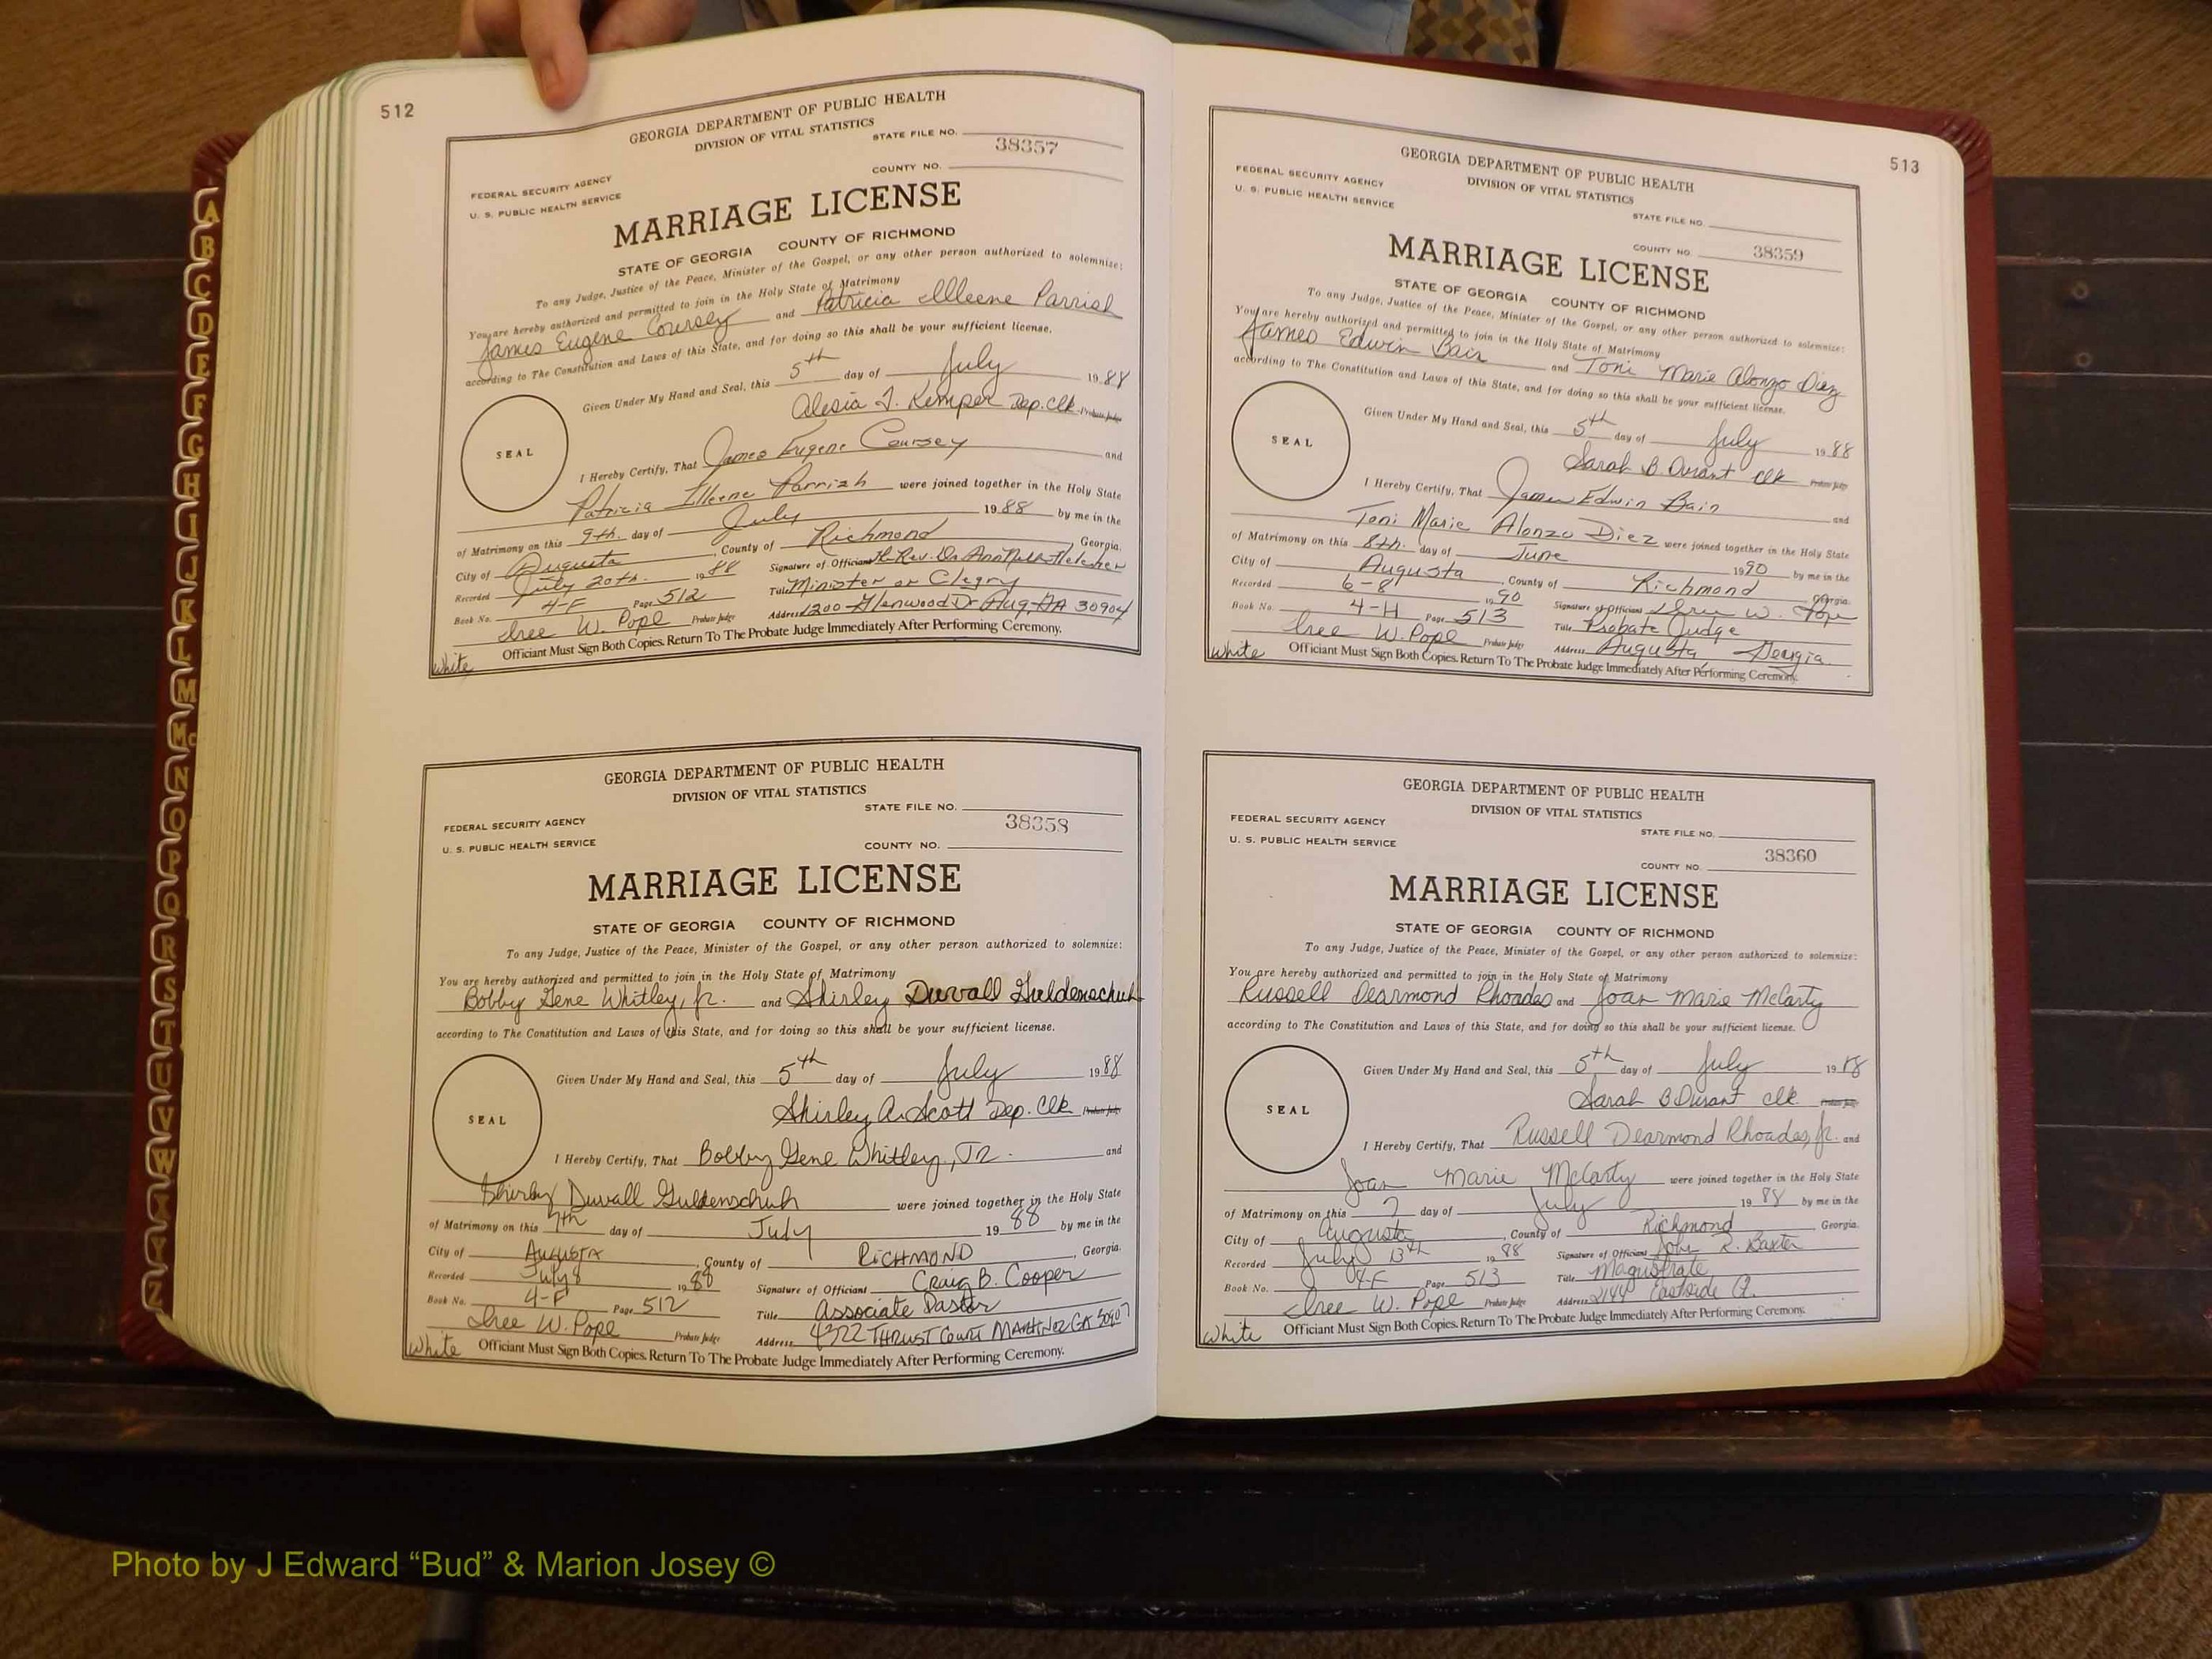 512
GEORGIA DEPARTMENT OF PUBLIC HEALTH
DIVISION OF VITAL STATISTICS
STATE FILE NO.
38357
COUNTY NO.
FEDERAL SECURITY AGENCY
U. S. PUBLIC HEALTH SERVICE
MARRIAGE LICENSE
STATE OF GEORGIA COUNTY OF RICHMOND
To any Judge, Justice of the Peace, Minister of the Gospel, or any other person authorized to solemnize:
You are hereby authorized and permitted to join in the Holy State of Matrimony
James Eugene Coursey and Patricia Illeene Parrish
according to The Constitution and Laws of this State, and for doing so this shall be your sufficient license.
Given Under My Hand and Seal, this 5th day of July 1988
Alesia J. Kemper Dep. Clk. Probate Judge
SEAL
I Hereby Certify, That James Eugene Coursey and
Patricia Illeene Parrish were joined together in the Holy State
of Matrimony on this 9th. day of July 1988 by me in the
City of Augusta, County of Richmond, Georgia.
Recorded July 20th. 1988 Signature of Officiant Rev. Dr.
Book No. 4-F Page 512 Title Minister or Clegry
Iree W. Pope Probate Judge Address 1200 Glenwood Dr Aug, GA 30904
White Officiant Must Sign Both Copies. Return To The Probate Judge Immediately After Performing Ceremony.
GEORGIA DEPARTMENT OF PUBLIC HEALTH
DIVISION OF VITAL STATISTICS
STATE FILE NO.
38358
FEDERAL SECURITY AGENCY
U. S. PUBLIC HEALTH SERVICE
COUNTY NO.
MARRIAGE LICENSE
STATE OF GEORGIA COUNTY OF RICHMOND
To any Judge, Justice of the Peace, Minister of the Gospel, or any other person authorized to solemnize:
You are hereby authorized and permitted to join in the Holy State of Matrimony
Bobby Gene Whitley, Jr. and Shirley Duvall Guldenschuh
according to The Constitution and Laws of this State, and for doing so this shall be your sufficient license.
Given Under My Hand and Seal, this 5th day of July 1988
Shirley A. Scott Dep. Clk Probate Judge
SEAL
I Hereby Certify, That Bobby Gene Whitley, JR. and
Shirley Duvall Guldenschuh were joined together in the Holy State
of Matrimony on this 7th day of July 1988 by me in the
City of AUGUSTA, County of RICHMOND, Georgia.
Recorded July 8 1988 Signature of Officiant Craig B. Cooper
Book No. 4-F Page 512 Title Associate Pastor
Iree W. Pope Probate Judge Address 4322 THRUST COURT MARTINEZ GA 30907
White Officiant Must Sign Both Copies. Return To The Probate Judge Immediately After Performing Ceremony.
513
GEORGIA DEPARTMENT OF PUBLIC HEALTH
DIVISION OF VITAL STATISTICS
FEDERAL SECURITY AGENCY
U. S. PUBLIC HEALTH SERVICE
STATE FILE NO.
COUNTY NO. 38359
MARRIAGE LICENSE
STATE OF GEORGIA COUNTY OF RICHMOND
To any Judge, Justice of the Peace, Minister of the Gospel, or any other person authorized to solemnize:
You are hereby authorized and permitted to join in the Holy State of Matrimony
James Edwin Bair and Toni Marie Alonzo Diez
according to The Constitution and Laws of this State, and for doing so this shall be your sufficient license.
Given Under My Hand and Seal, this 5th day of July 1988
Sarah B. Durant Clk Probate Judge
SEAL
I Hereby Certify, That James Edwin Bain and
Toni Marie Alonzo Diez were joined together in the Holy State
of Matrimony on this 8th. day of June 1990 by me in the
City of Augusta, County of Richmond Georgia.
Recorded 6-8 1990 Signature of Officiant Iree W. Pope
Book No. 4-H Page 513 Title Probate Judge
Iree W. Pope Probate Judge Address Augusta Georgia
White Officiant Must Sign Both Copies. Return To The Probate Judge Immediately After Performing Ceremony.
GEORGIA DEPARTMENT OF PUBLIC HEALTH
DIVISION OF VITAL STATISTICS
FEDERAL SECURITY AGENCY
U. S. PUBLIC HEALTH SERVICE
STATE FILE NO.
38360
COUNTY NO.
MARRIAGE LICENSE
STATE OF GEORGIA COUNTY OF RICHMOND
To any Judge, Justice of the Peace, Minister of the Gospel, or any other person authorized to solemnize:
You are hereby authorized and permitted to join in the Holy State of Matrimony
Russell Dearmond Rhoades and Joan Marie McCarty
according to The Constitution and Laws of this State, and for doing so this shall be your sufficient license.
Given Under My Hand and Seal, this 5th day of July 1988
Sarah B Durant Clk. Probate Judge
SEAL
I Hereby Certify, That Russell Dearmond Rhoades, Jr. and
Joan Marie McCarty were joined together in the Holy State
of Matrimony on this 7 day of July 1988 by me in the
City of Augusta, County of Richmond Georgia.
Recorded July 13th 1988 Signature of Officiant John R. Baxter
Book No. 4-F Page 513 Title Magistrate
Iree W. Pope Probate Judge Address 2144 Eastside
White Officiant Must Sign Both Copies. Return To The Probate Judge Immediately After Performing Ceremony.
A
B
C
D
E
F
G
H
I
J
K
L
M
Mc
N
O
P
Q
R
S
T
U
V
W
X
Y
Z
Photo by J Edward “Bud” & Marion Josey ©